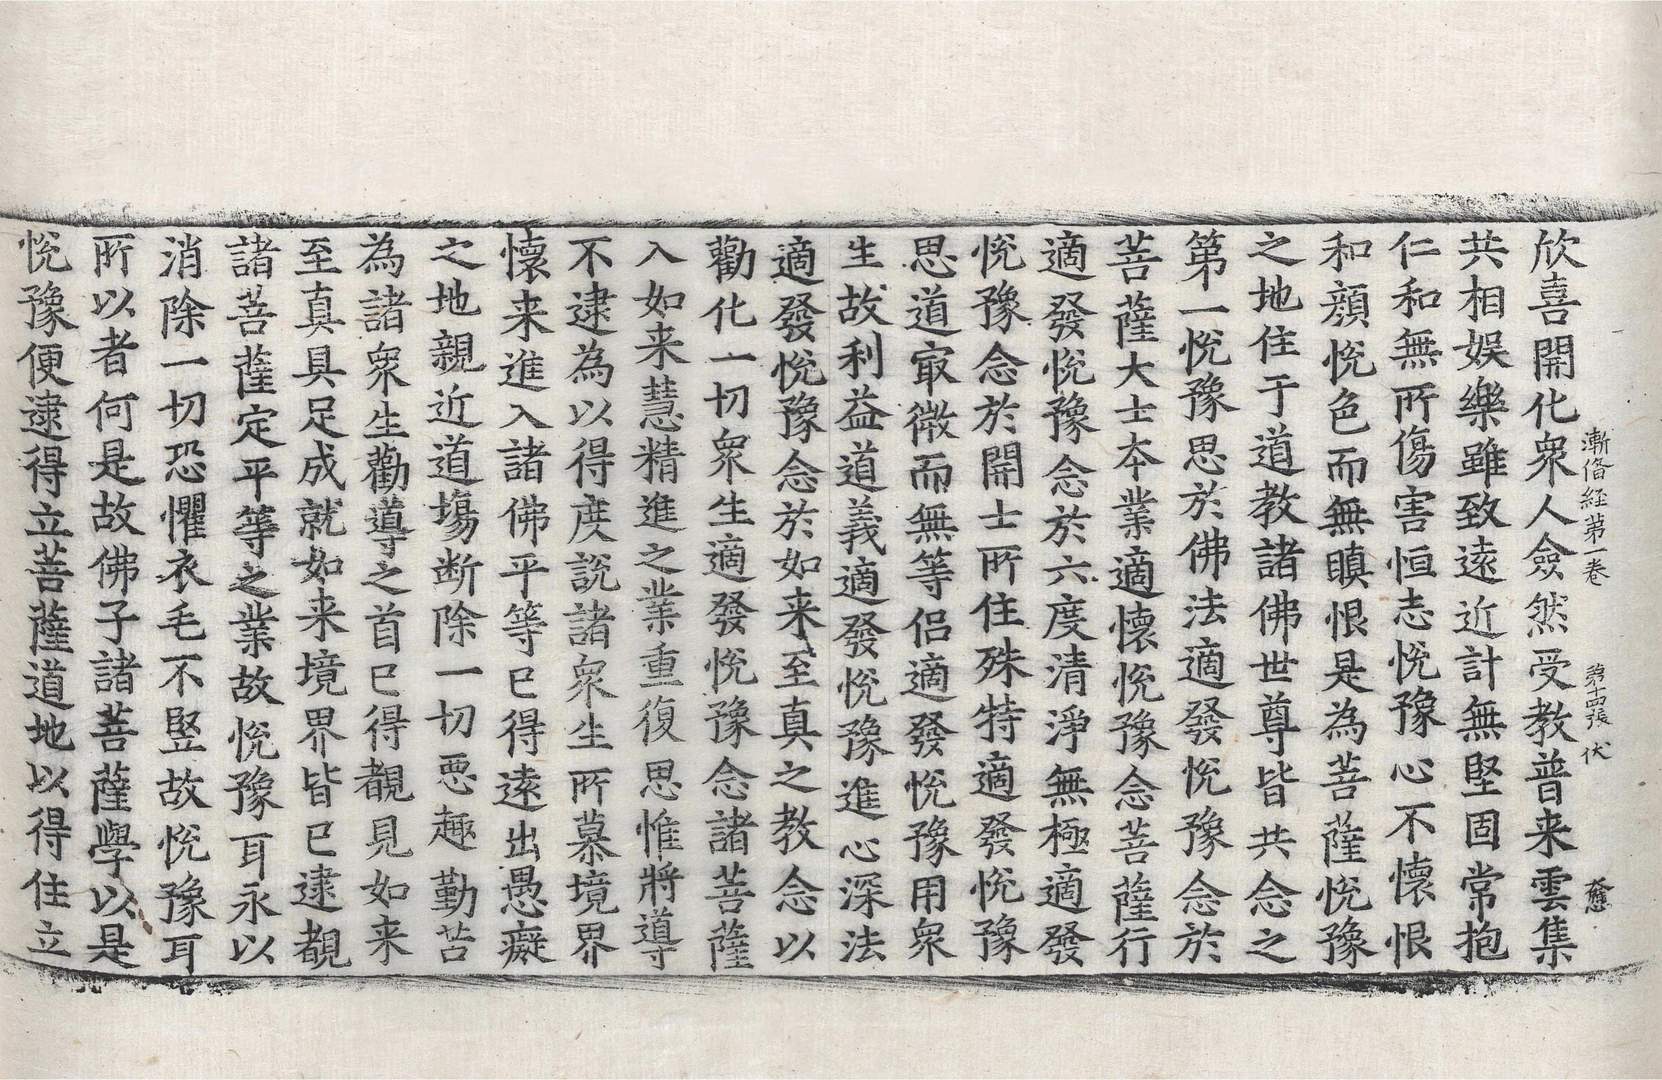 漸俻經第一卷　第十四張　伏
欣喜開化衆人僉然受教普来雲集
共相娛樂雖致遠近計無堅固常抱
仁和無所傷害恒志悅豫心不懷恨
和顔悅色而無瞋恨是為菩薩悅豫
之地住于道教諸佛世尊皆共念之
第一悅豫思於佛法適發悅豫念於
菩薩大士夲業適懷悅豫念菩薩行
適發悅豫念於六度清淨無極適發
悅豫念於開士所住殊特適發悅豫
思道㝡微而無等侶適發悅豫用衆
生故利益道義適發悅豫進心深法
適發悅豫念於如来至真之教念以
勸化一切衆生適發悅豫念諸菩薩
入如来慧精進之業重復思惟將導
不逮為以得度說諸衆生所慕境界
懷来進入諸佛平等已得遠出愚癡
之地親近道場断除一切惡趣勤苦
為諸衆生勸導之首已得覩見如来
至真具足成就如来境界皆已逮覩
諸菩薩定平等之業故悅豫耳永以
消除一切恐懼衣毛不竪故悅豫耳
所以者何是故佛子諸菩薩學以是
悅豫便逮得立菩薩道地以得住立